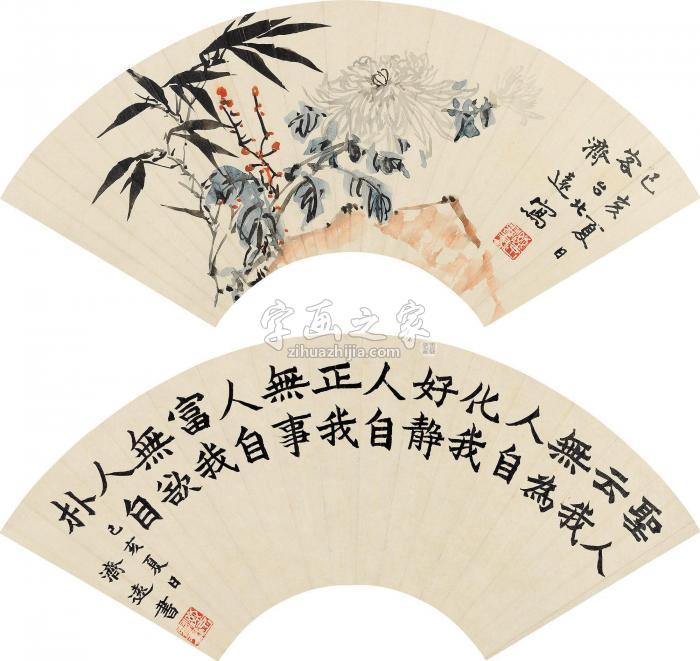 己亥夏日
客台北
濟遠寫
字画之家
zihuazhijia.com
聖人
云我
無為
人自
化我
好静
人自
正我
無事
人自
富我
無欲
人自
朴
己亥夏日
濟遠書